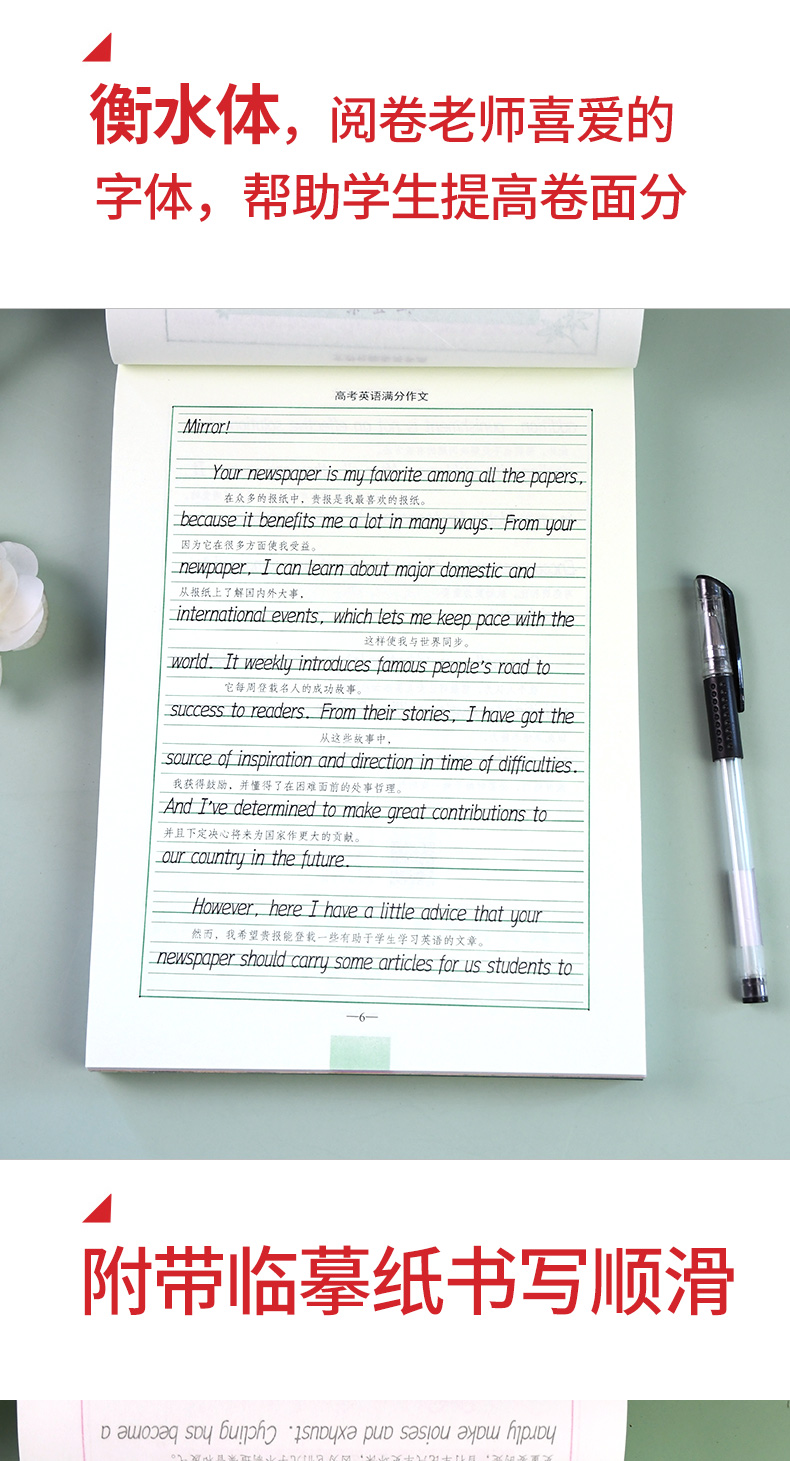 衡水体，阅卷老师喜爱的
字体，帮助学生提高卷面分
高考英语满分作文
Mirror!
Your newspaper is my favorite among all the papers,
在众多的报纸中，贵报是我最喜欢的报纸。
because it benefits me a lot in many ways. From your
因为它在很多方面使我受益。
newpaper, I can learn about major domestic and
从报纸上了解国内外大事，
international events, which lets me keep pace with the
这样使我与世界同步。
world. It weekly introduces famous people's road to
它每周登载名人的成功故事。
success to readers. From their stories, I have got the
从这些故事中，
source of inspiration and direction in time of difficulties.
我获得鼓励，并懂得了在困难面前的处事哲理。
And I've determined to make great contributions to
并且下定决心将来为国家作更大的贡献。
our country in the future.
However, here I have a little advice that your
然而，我希望贵报能登载一些有助于学生学习英语的文章。
newspaper should carry some articles for us students to
—6—
附带临摹纸书写顺滑
hardly make noises and exhaust. Cycling has become a